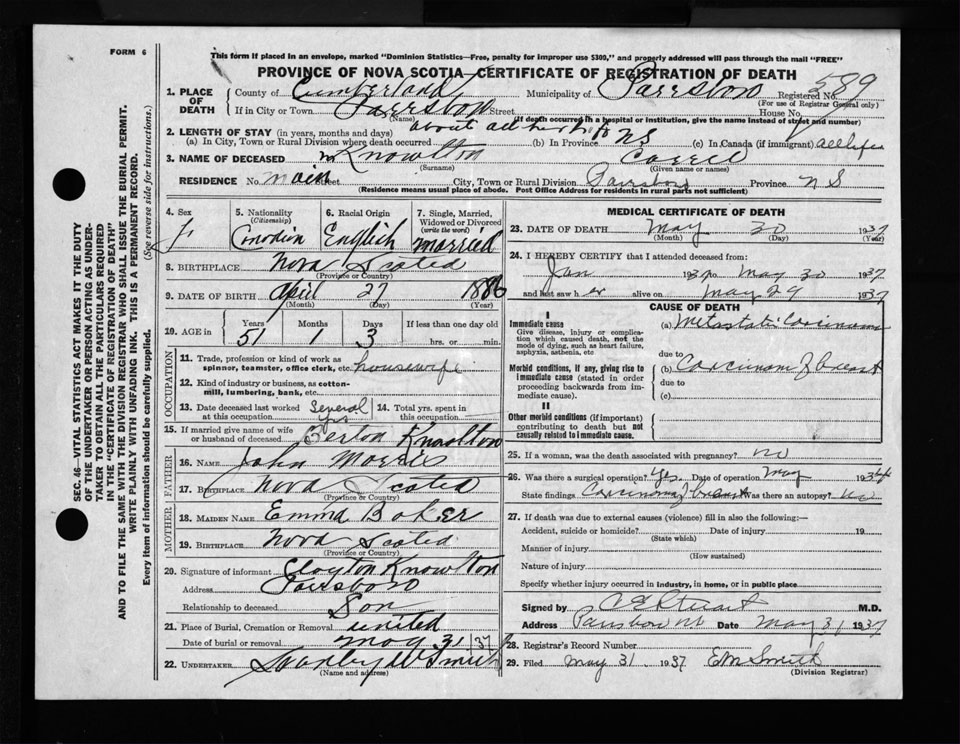 FORM 6
This form if placed in an envelope, marked "Dominion Statistics—Free, penalty for improper use $300," and properly addressed will pass through the mail "FREE"
PROVINCE OF NOVA SCOTIA—CERTIFICATE OF REGISTRATION OF DEATH
589
1. PLACE OF DEATH
County of Cumberland Municipality of Parrsboro Registered No.
(For use of Registrar General only)
If in City or Town Parrsboro Street House No.
(Name) (If death occurred in a hospital or institution, give the name instead of street and number)
2. LENGTH OF STAY (in years, months and days)
(a) In City, Town or Rural Division where death occurred about all her life (b) In Province NS (c) In Canada (if immigrant) all life
3. NAME OF DECEASED Knowlton Carrie
(Surname) (Given name or names)
RESIDENCE No. Main Street City, Town or Rural Division Parrsboro Province N S
(Residence means usual place of abode. Post Office Address for residents in rural parts not sufficient)
4. Sex F
5. Nationality (Citizenship) Canadian
6. Racial Origin English
7. Single, Married, Widowed or Divorced (write the word) married
8. BIRTHPLACE Nova Scotia
(Province or Country)
9. DATE OF BIRTH April 27 1886
(Month) (Day) (Year)
10. AGE in Years Months Days If less than one day old
51 1 3 hrs. or min.
OCCUPATION
11. Trade, profession or kind of work as spinner, teamster, office clerk, etc. housewife
12. Kind of industry or business, as cotton-mill, lumbering, bank, etc.
13. Date deceased last worked at this occupation Several yrs
14. Total yrs. spent in this occupation
15. If married give name of wife or husband of deceased Berton Knowlton
FATHER
16. NAME John Morris
17. BIRTHPLACE Nova Scotia
(Province or Country)
MOTHER
18. MAIDEN NAME Emma Baker
19. BIRTHPLACE Nova Scotia
(Province or Country)
20. Signature of informant Clayton Knowlton
Address Parrsboro
Relationship to deceased Son
21. Place of Burial, Cremation or Removal united
Date of burial or removal May 31/37
22. UNDERTAKER Stanley W Smith
(Name and address)
MEDICAL CERTIFICATE OF DEATH
23. DATE OF DEATH May 30 1937
(Month) (Day) (Year)
24. I HEREBY CERTIFY that I attended deceased from:
Jan 1937 to May 30 1937
and last saw h er alive on May 29 1937
CAUSE OF DEATH
I
Immediate cause
Give disease, injury or complication which caused death, not the mode of dying, such as heart failure, asphyxia, asthenia, etc
(a) Metastatic Carcinoma
due to
Morbid conditions, if any, giving rise to immediate cause (stated in order proceeding backwards from immediate cause).
(b) Carcinoma of breast
due to
(c)
II
Other morbid conditions (if important) contributing to death but not causally related to immediate cause.
25. If a woman, was the death associated with pregnancy? no
26. Was there a surgical operation? Yes Date of operation May 1934
State findings Carcinoma of breast Was there an autopsy? no
27. If death was due to external causes (violence) fill in also the following:—
Accident, suicide or homicide? Date of injury 19
(State which)
Manner of injury
(How sustained)
Nature of injury
Specify whether injury occurred in industry, in home, or in public place
Signed by C E Stuart M.D.
Address Parrsboro NS Date May 31 1937
28. Registrar's Record Number
29. Filed May 31 1937 E M Smith
(Division Registrar)
SEC. 46—VITAL STATISTICS ACT MAKES IT THE DUTY
OF THE UNDERTAKER OR PERSON ACTING AS UNDER-
TAKER TO OBTAIN ALL THE PARTICULARS REQUIRED
IN THE "CERTIFICATE OF REGISTRATION OF DEATH"
AND TO FILE THE SAME WITH THE DIVISION REGISTRAR WHO SHALL ISSUE THE BURIAL PERMIT.
WRITE PLAINLY WITH UNFADING INK. THIS IS A PERMANENT RECORD.
Every item of information should be carefully supplied. (See reverse side for instructions.)